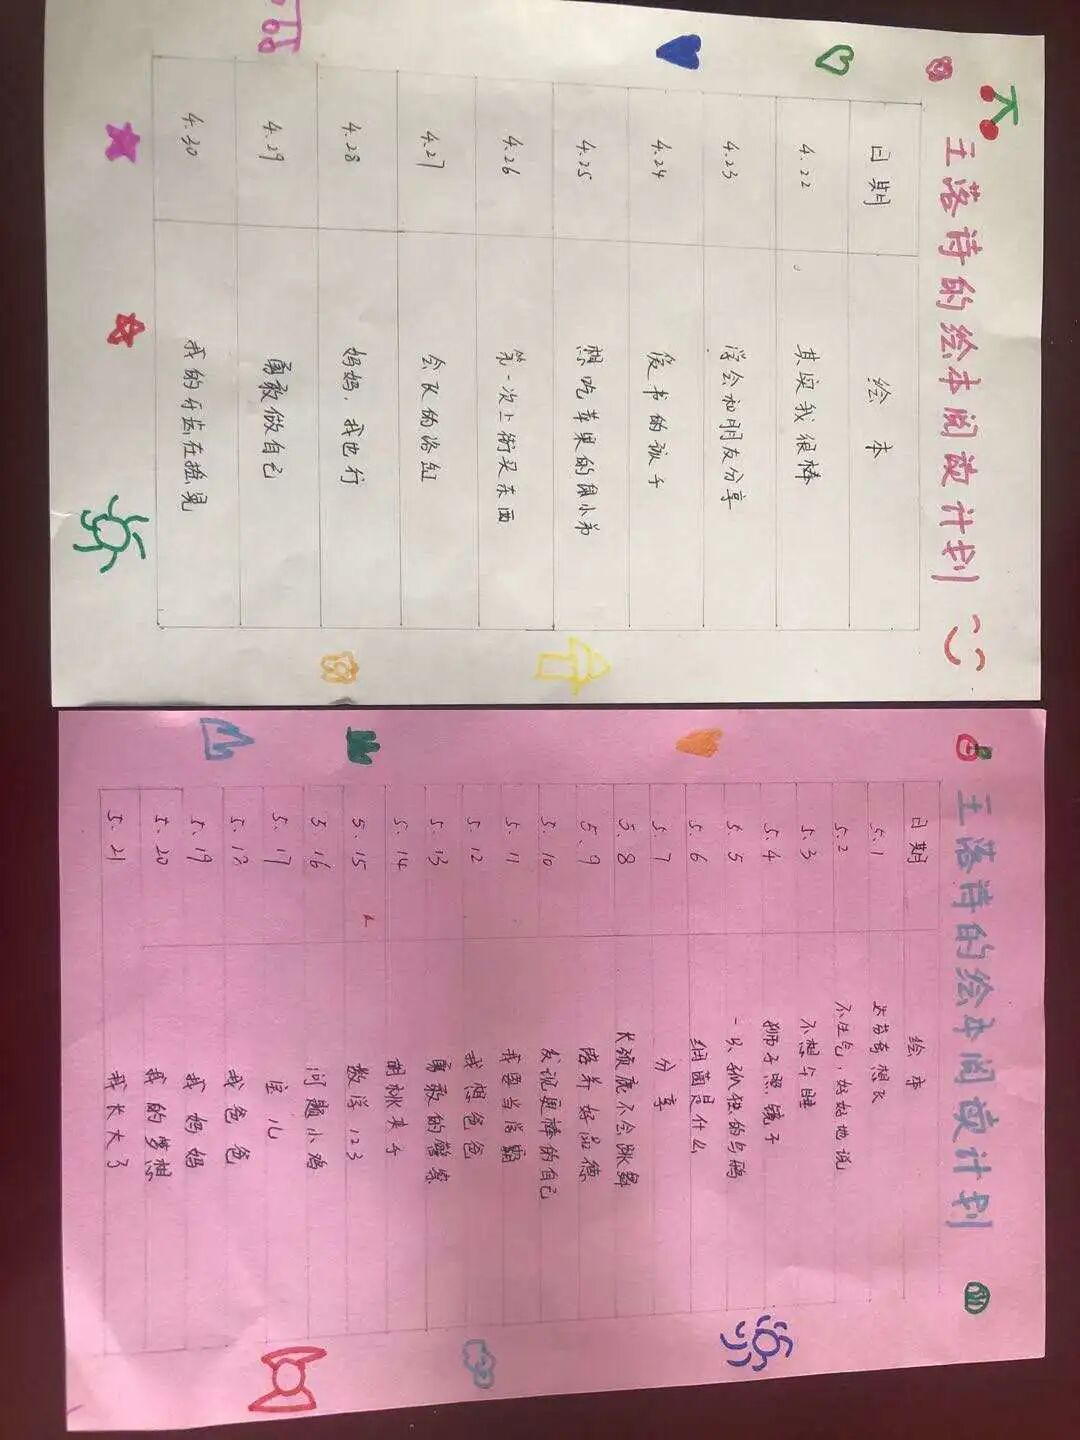 王落诗的绘本阅读计划
日期 绘本
4.22 其实我很棒
4.23 学会和朋友分享
4.24 爱书的孩子
4.25 想吃苹果的鼠小弟
4.26 第一次上街买东西
4.27 会飞的浴缸
4.28 妈妈，我也行
4.29 勇敢做自己
4.30 我的牙齿在摇晃
王落诗的绘本阅读计划
日期 绘本
5.1
5.2 不生气，好好地说
5.3 不想午睡
5.4 狮子照镜子
5.5 一只孤独的乌鸦
5.6 细菌是什么
5.7 分享
5.8 长颈鹿不会跳舞
5.9 培养好品德
5.10 发现更棒的自己
5.11 我要当
5.12 我想爸爸
5.13 勇敢的警察
5.14 胡桃夹子
5.15 数学123
5.16 问题小鸡
5.17 宝儿
5.18 我爸爸
5.19 我妈妈
5.20 我的梦想
5.21 我长大了